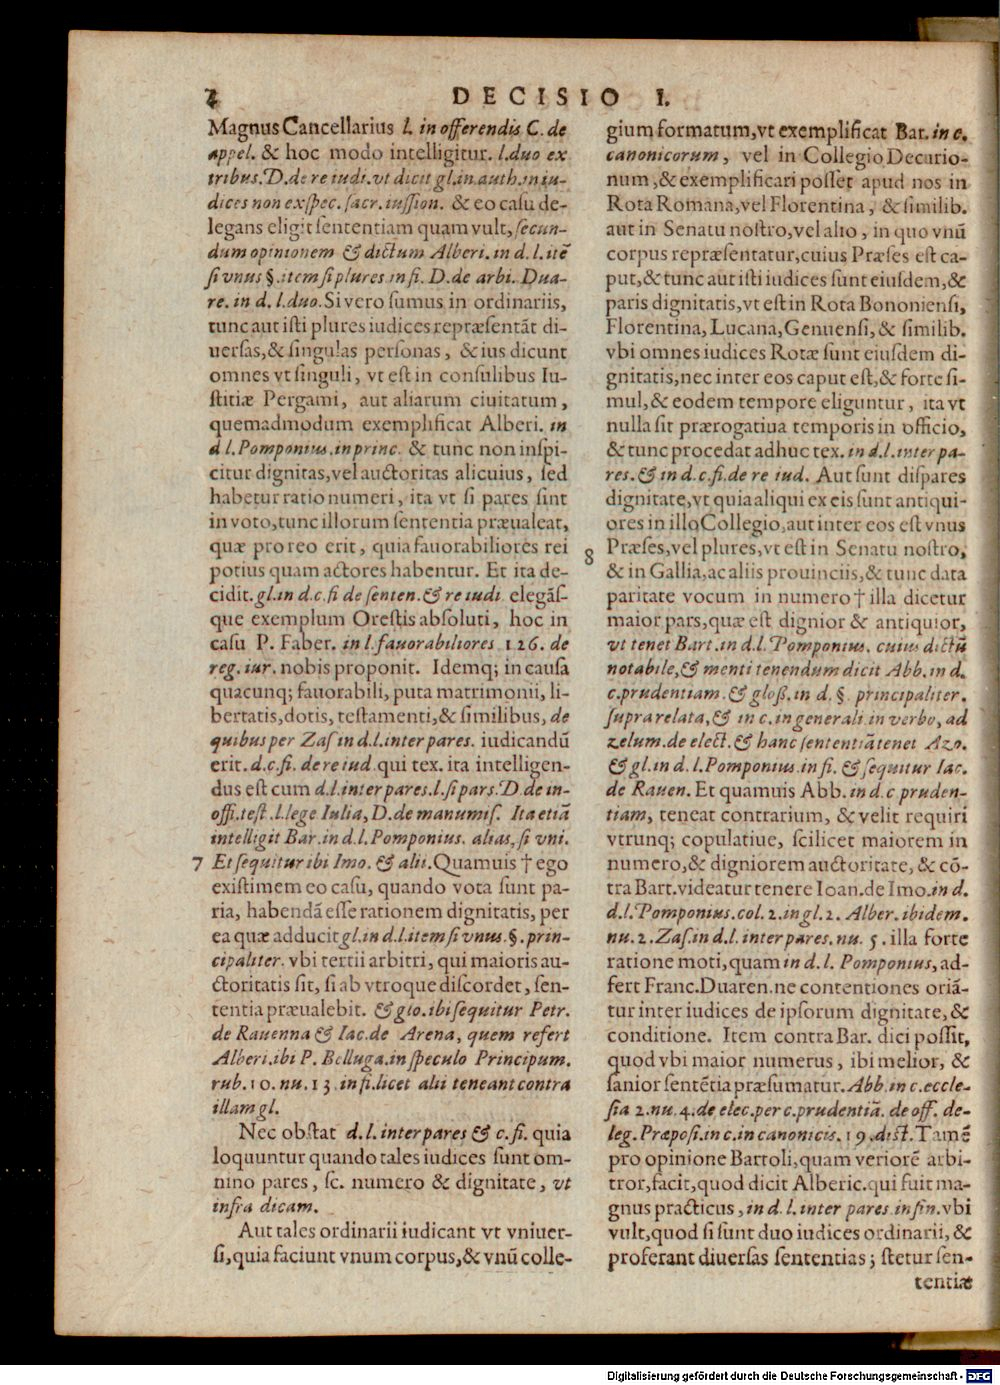 DECISIO I.
Magnus Cancellarius l. in offerendis C. de
appel. & hoc modo intelligitur. l.duo ex
tribus. D. de re iudi. vt dicit gl. in auth. in iu-
dices non exspec. sacr. iussion. & eo casu de-
legans eligit sententiam quam vult, secun-
dum opinionem & dictum Alberi. in d. l. itē
si vnus §. item si plures in fi. D. de arbi. Dua-
re. in d. l. duo. Si vero sumus in ordinariis,
tunc aut isti plures iudices repræsentāt di-
uersas, & singulas personas, & ius dicunt
omnes vt singuli, vt est in consulibus Iu-
stitiæ Pergami, aut aliarum ciuitatum,
quemadmodum exemplificat Alberi. in
d l. Pomponius. in princ. & tunc non inspi-
citur dignitas, vel auctoritas alicuius, sed
habetur ratio numeri, ita vt si pares sint
in voto, tunc illorum sententia præualeat,
quæ pro reo erit, quia fauorabiliores rei
potius quam actores habentur. Et ita de-
cidit. gl. in d. c. fi de senten. & re iudi. elegās-
que exemplum Orestis absoluti, hoc in
casu P. Faber. in l. fauorabiliores 126. de
reg. iur. nobis proponit. Idemq; in causa
quacunq; fauorabili, puta matrimonii, li-
bertatis, dotis, testamenti, & similibus, de
quibus per Zas in d. l. inter pares. iudicandū
erit. d. c. fi. de re iud. qui tex. ita intelligen-
dus est cum d. l. inter pares. l. si pars. D. de in-
offi. test. l. lege Iulia, D. de manumis. Ita etiā
intelligit Bar. in d. l. Pomponius. alias, si vni.
7 Et sequitur ibi Imo. & alii. Quamuis † ego
existimem eo casu, quando vota sunt pa-
ria, habendā esse rationem dignitatis, per
ea quæ adducit gl. in d. l. item si vnus. §. prin-
cipaliter. vbi tertii arbitri, qui maioris au-
ctoritatis sit, si ab vtroque discordet, sen-
tentia præualebit. & glo. ibi sequitur Petr.
de Rauenna & Iac. de Arena, quem refert
Alberi. ibi P. Belluga. in speculo Principum.
rub. 10. nu. 13. in fi. licet alii teneant contra
illam gl.
Nec obstat d. l. inter pares & c. fi. quia
loquuntur quando tales iudices sunt om-
nino pares, sc. numero & dignitate, vt
infra dicam.
Aut tales ordinarii iudicant vt vniuer-
si, quia faciunt vnum corpus, & vnū colle-
gium formatum, vt exemplificat Bar. in c.
canonicorum, vel in Collegio Decurio-
num, & exemplificari posset apud nos in
Rota Romana, vel Florentina, & similib.
aut in Senatu nostro, vel alio, in quo vnū
corpus repræsentatur, cuius Præses est ca-
put, & tunc aut isti iudices sunt eiusdem, &
paris dignitatis, vt est in Rota Bononiensi,
Florentina, Lucana, Genuensi, & similib.
vbi omnes iudices Rotæ sunt eiusdem di-
gnitatis, nec inter eos caput est, & forte si-
mul, & eodem tempore eliguntur, ita vt
nulla sit prærogatiua temporis in officio,
& tunc procedat adhuc tex. in d. l. inter pa-
res. & in d. c. fi. de re iud. Aut sunt dispares
dignitate, vt quia aliqui ex eis sunt antiqui-
ores in illo Collegio, aut inter eos est vnus
8 Præses, vel plures, vt est in Senatu nostro,
& in Gallia, ac aliis prouinciis, & tunc data
paritate vocum in numero † illa dicetur
maior pars, quæ est dignior & antiquior,
vt tenet Bart. in d. l. Pomponius. cuius dictū
notabile, & menti tenendum dicit Abb. in d.
c. prudentiam. & gloss. in d. §. principaliter.
supra relata, & in c. in generali in verbo, ad
zelum. de elect. & hanc sententiā tenet Azo.
& gl. in d. l. Pomponius. in fi. & sequitur Iac.
de Rauen. Et quamuis Abb. in d. c pruden-
tiam, teneat contrarium, & velit requiri
vtrunq; copulatiue, scilicet maiorem in
numero, & digniorem auctoritate, & cō-
tra Bart. videatur tenere Ioan. de Imo. in d.
d. l. Pomponius. col. 2. in gl. 2. Alber. ibidem.
nu. 2. Zas. in d. l. inter pares. nu. 5. illa forte
ratione moti, quam in d. l. Pomponius, ad-
fert Franc. Duaren. ne contentiones oriā-
tur inter iudices de ipsorum dignitate, &
conditione. Item contra Bar. dici possit,
quod vbi maior numerus, ibi melior, &
sanior sentētia præsumatur. Abb. in c. eccle-
sia 2. nu. 4. de elec. per c. prudentiā. de off. de-
leg. Præposi. in c. in canonicis. 19. dist. Tamē
pro opinione Bartoli, quam veriorē arbi-
tror, facit, quod dicit Alberic. qui fuit ma-
gnus practicus, in d. l. inter pares in fin. vbi
vult, quod si sunt duo iudices ordinarii, &
proferant diuersas sententias; stetur sen-
tentiæ
Digitalisierung gefördert durch die Deutsche Forschungsgemeinschaft - DFG